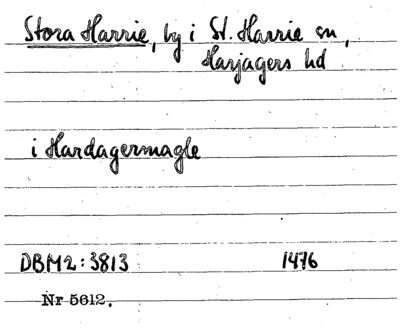 Stora Harrie, by i St. Harrie sn,
Harjagers hd
i Hardagermagle
DBM2:3813 1476
Nr 5612.